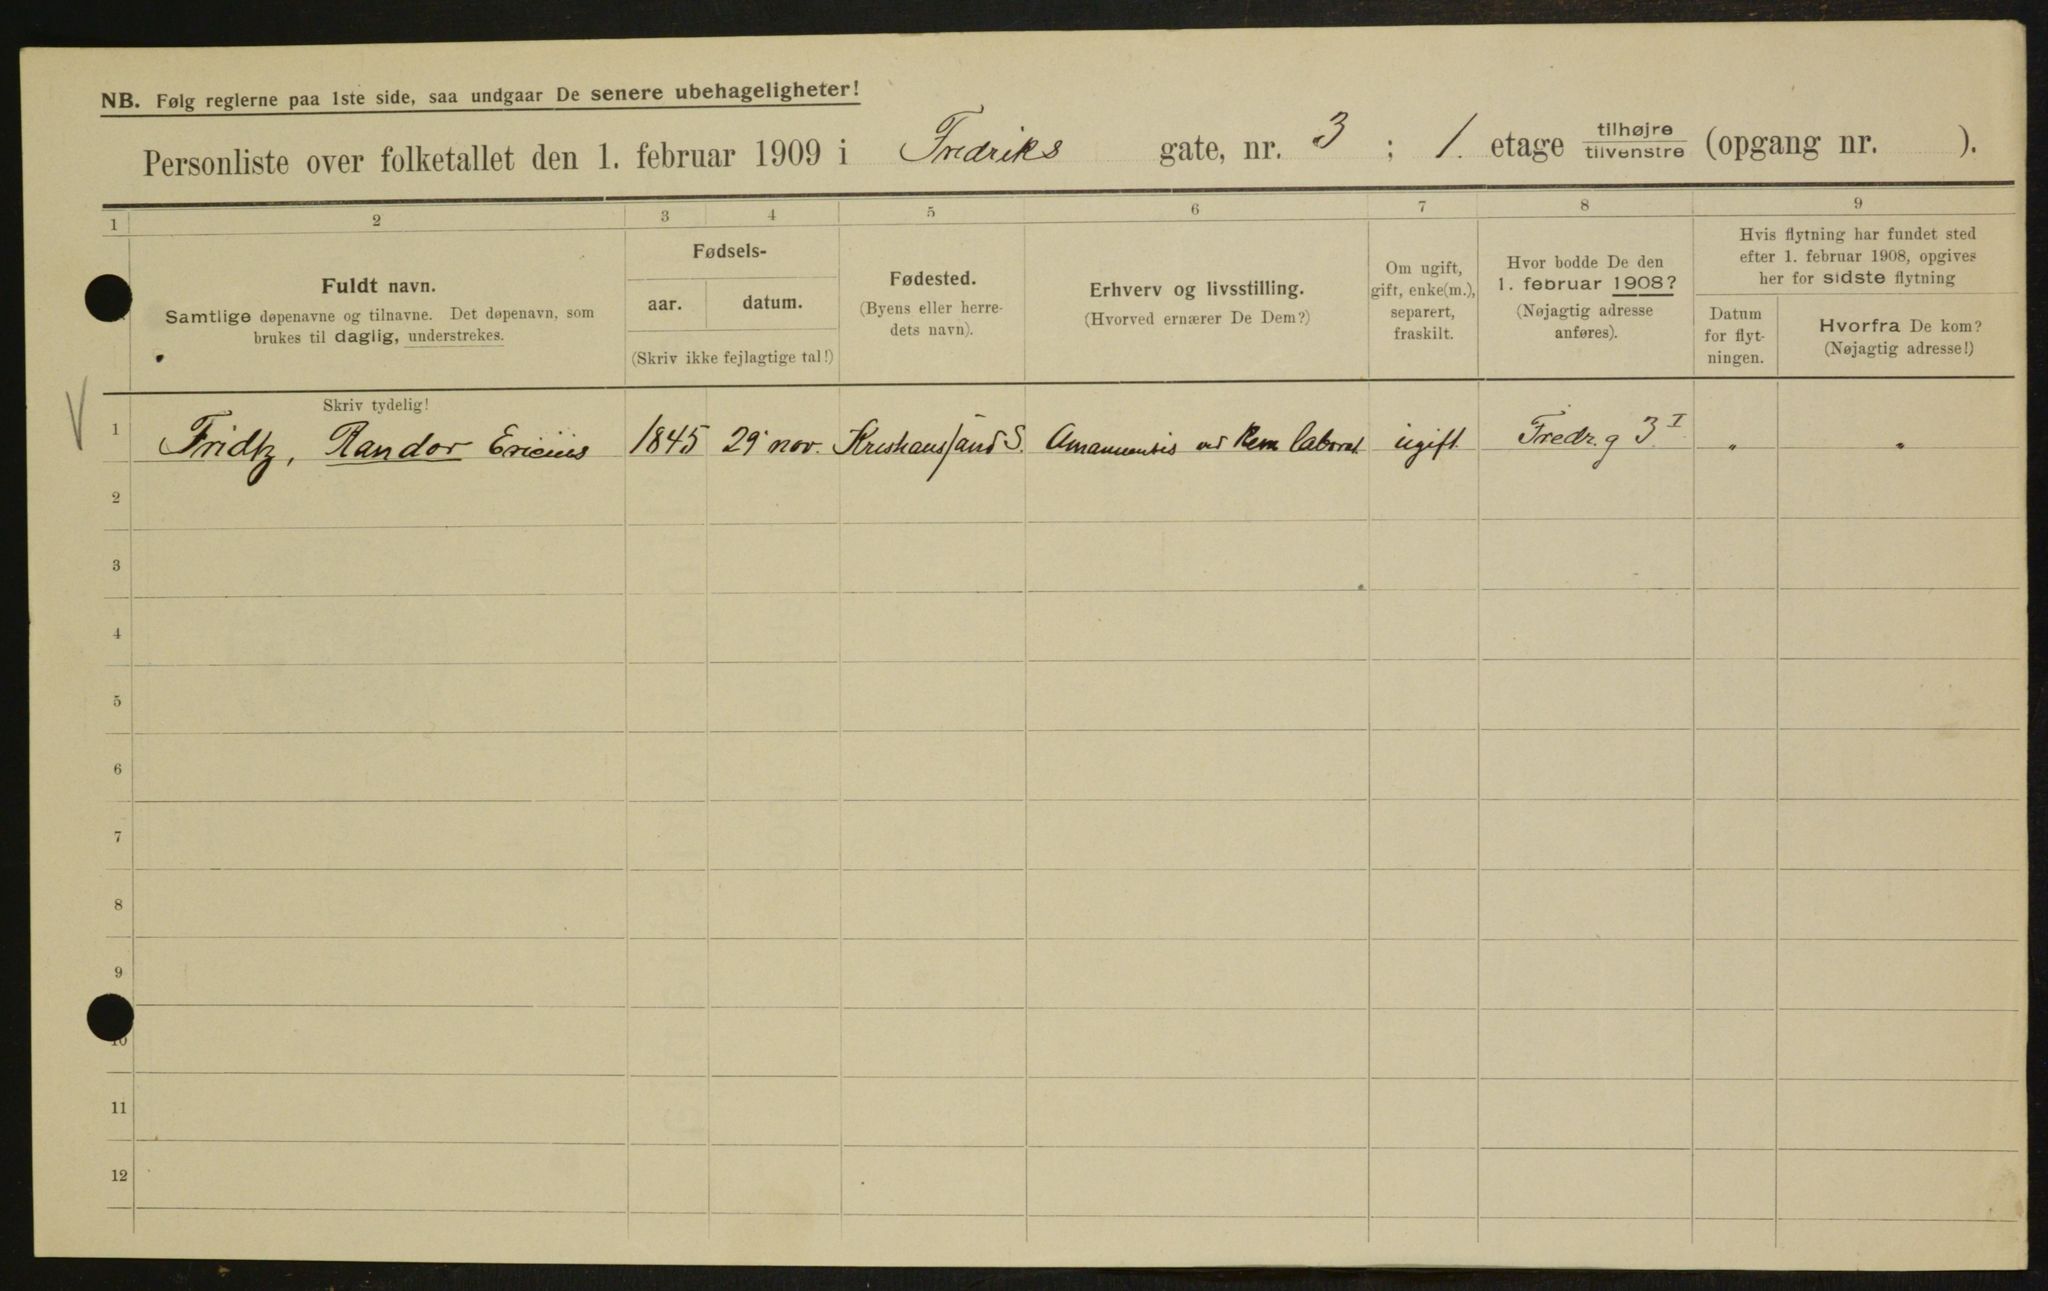 NB. Følg reglerne paa 1ste side, saa undgaar De senere ubehageligheter!
Personliste over folketallet den 1. februar 1909 i Fredriks gate, nr. 3 ; 1. etage tilhøjre/tilvenstre (opgang nr. ).
1 2 3 4 5 6 7 8 9
Fuldt navn.
Samtlige døpenavne og tilnavne. Det døpenavn, som
brukes til daglig, understrekes.
Fødsels-
aar. datum.
(Skriv ikke fejlagtige tal!)
Fødested.
(Byens eller herre-
dets navn).
Erhverv og livsstilling.
(Hvorved ernærer De Dem?)
Om ugift,
gift, enke(m.),
separert,
fraskilt.
Hvor bodde De den
1. februar 1908?
(Nøjagtig adresse
anføres).
Hvis flytning har fundet sted
efter 1. februar 1908, opgives
her for sidste flytning
Datum
for flyt-
ningen.
Hvorfra De kom?
(Nøjagtig adresse!)
Skriv tydelig!
V
1 Fridtz, Randor Ericius 1845 29 nov. Kristiansand S. Amanuensis ved Kem laborat. ugift. Fredr. g 3 I " "
2
3
4
5
6
7
8
9
10
11
12